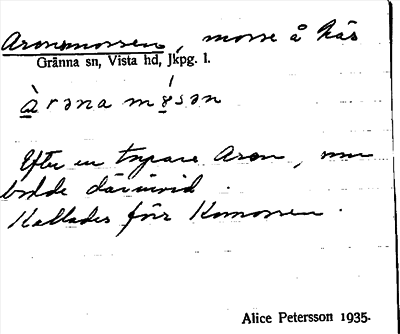 Aronsmossen, mosse å här
Gränna sn, Vista hd, Jkpg. l.
àrəna mósən
Efter en torpare Aron, som
bodde därinvid.
Kallades förr Komossen.
Alice Petersson 1935.